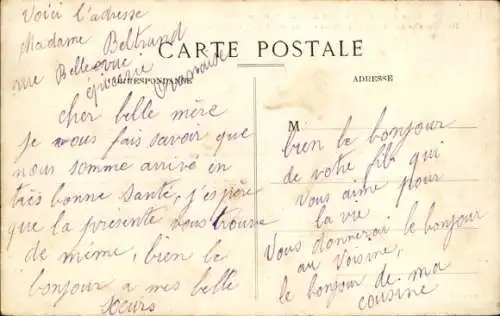 Voici l'adresse
Madame Beltrand
rue Bellevue
épicerie
CARTE POSTALE
CORRESPONDANCE
ADRESSE
cher belle mère
Je vous fais savoir que
nous somme arrivé en
très bonne santé, j'espère
que la présente vous trouve
de même, bien le
bonjour a mes belle
sœurs
M
bien le bonjour
de votre fils qui
vous aime pour
la vie
Vous donnerai le bonjour
au voisine,
le bonjour de ma
cousine